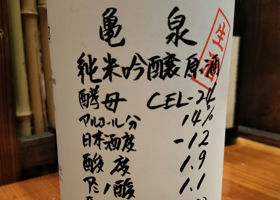 亀泉
純米吟醸原酒
酵母 CEL-24
アルコール分 14%
日本酒度 -12
酸度 1.9
アミノ酸 1.1